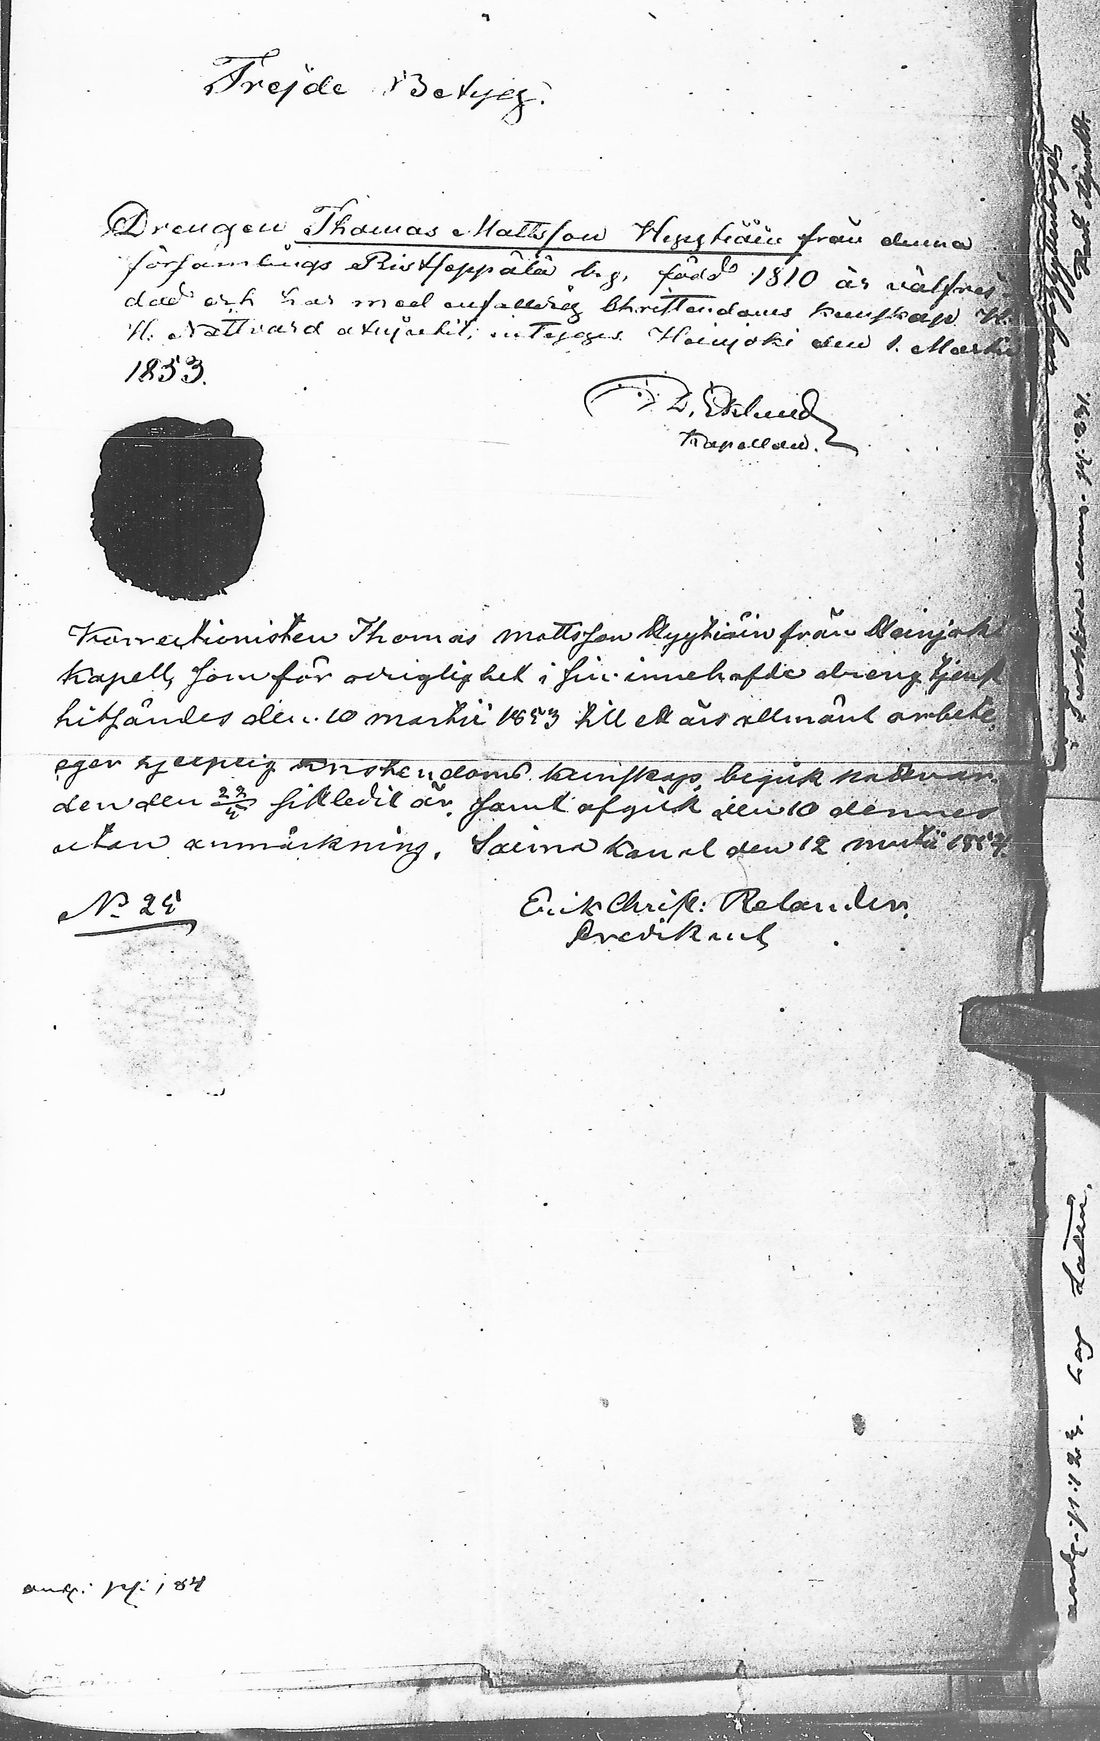 Frejde Betyg.
Drengen Thomas Mattsson Hyytiäin från denna
församlings Ristseppälä by, född 1810 är välfrej
dad och har med enfaldig Christendoms kunskap H.
H. Nattvard Heinjoki den 1. Martii
1853.
D. Eklund
Kapellan.
Korrectionisten Thomas Mattsson Hyytiäin från Heinjoki
Kapell, som för oviglighet i sin innehafde dreng tjenst
hitsändes den 10 martii 1853 till ett års allmänt arbete
eger hjelplig kristendoms kunskap, begick nattvar
den den 22/5 sistledit år, samt afgick den 10 dennes
utan anmärkning. Saima Kanal den 12 martii 1854.
No 25
Erik Christ: Relander.
Predikant